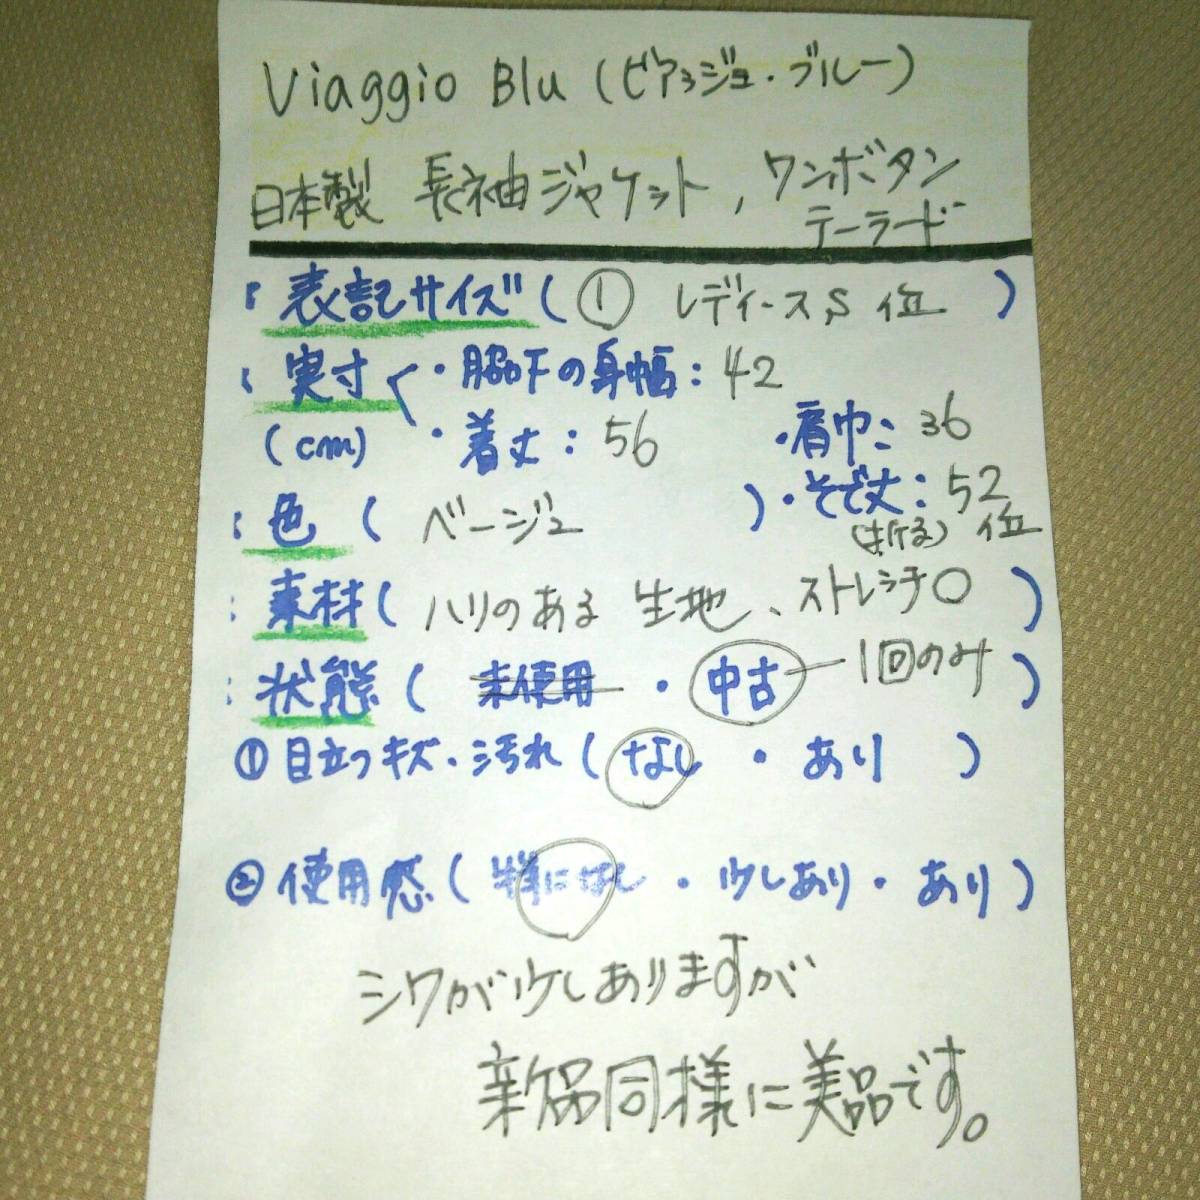 Viaggio Blu (ビアッジョ・ブルー)
日本製 長袖ジャケット, ワンボタン
テーラード
表記サイズ ( ① レディースS位 )
実寸 ・脇下の身幅: 42
(cm) ・着丈: 56 ・肩巾: 36
・そで丈: 52
色 ( ベージュ ) (折る) 位
素材 ( ハリのある 生地、ストレッチ○ )
状態 ( 未使用 ・ 中古 ー 1回のみ )
① 目立つキズ・汚れ ( なし ・ あり )
② 使用感 ( 特になし ・ 少しあり ・ あり )
シワが少しありますが
新品同様に美品です。